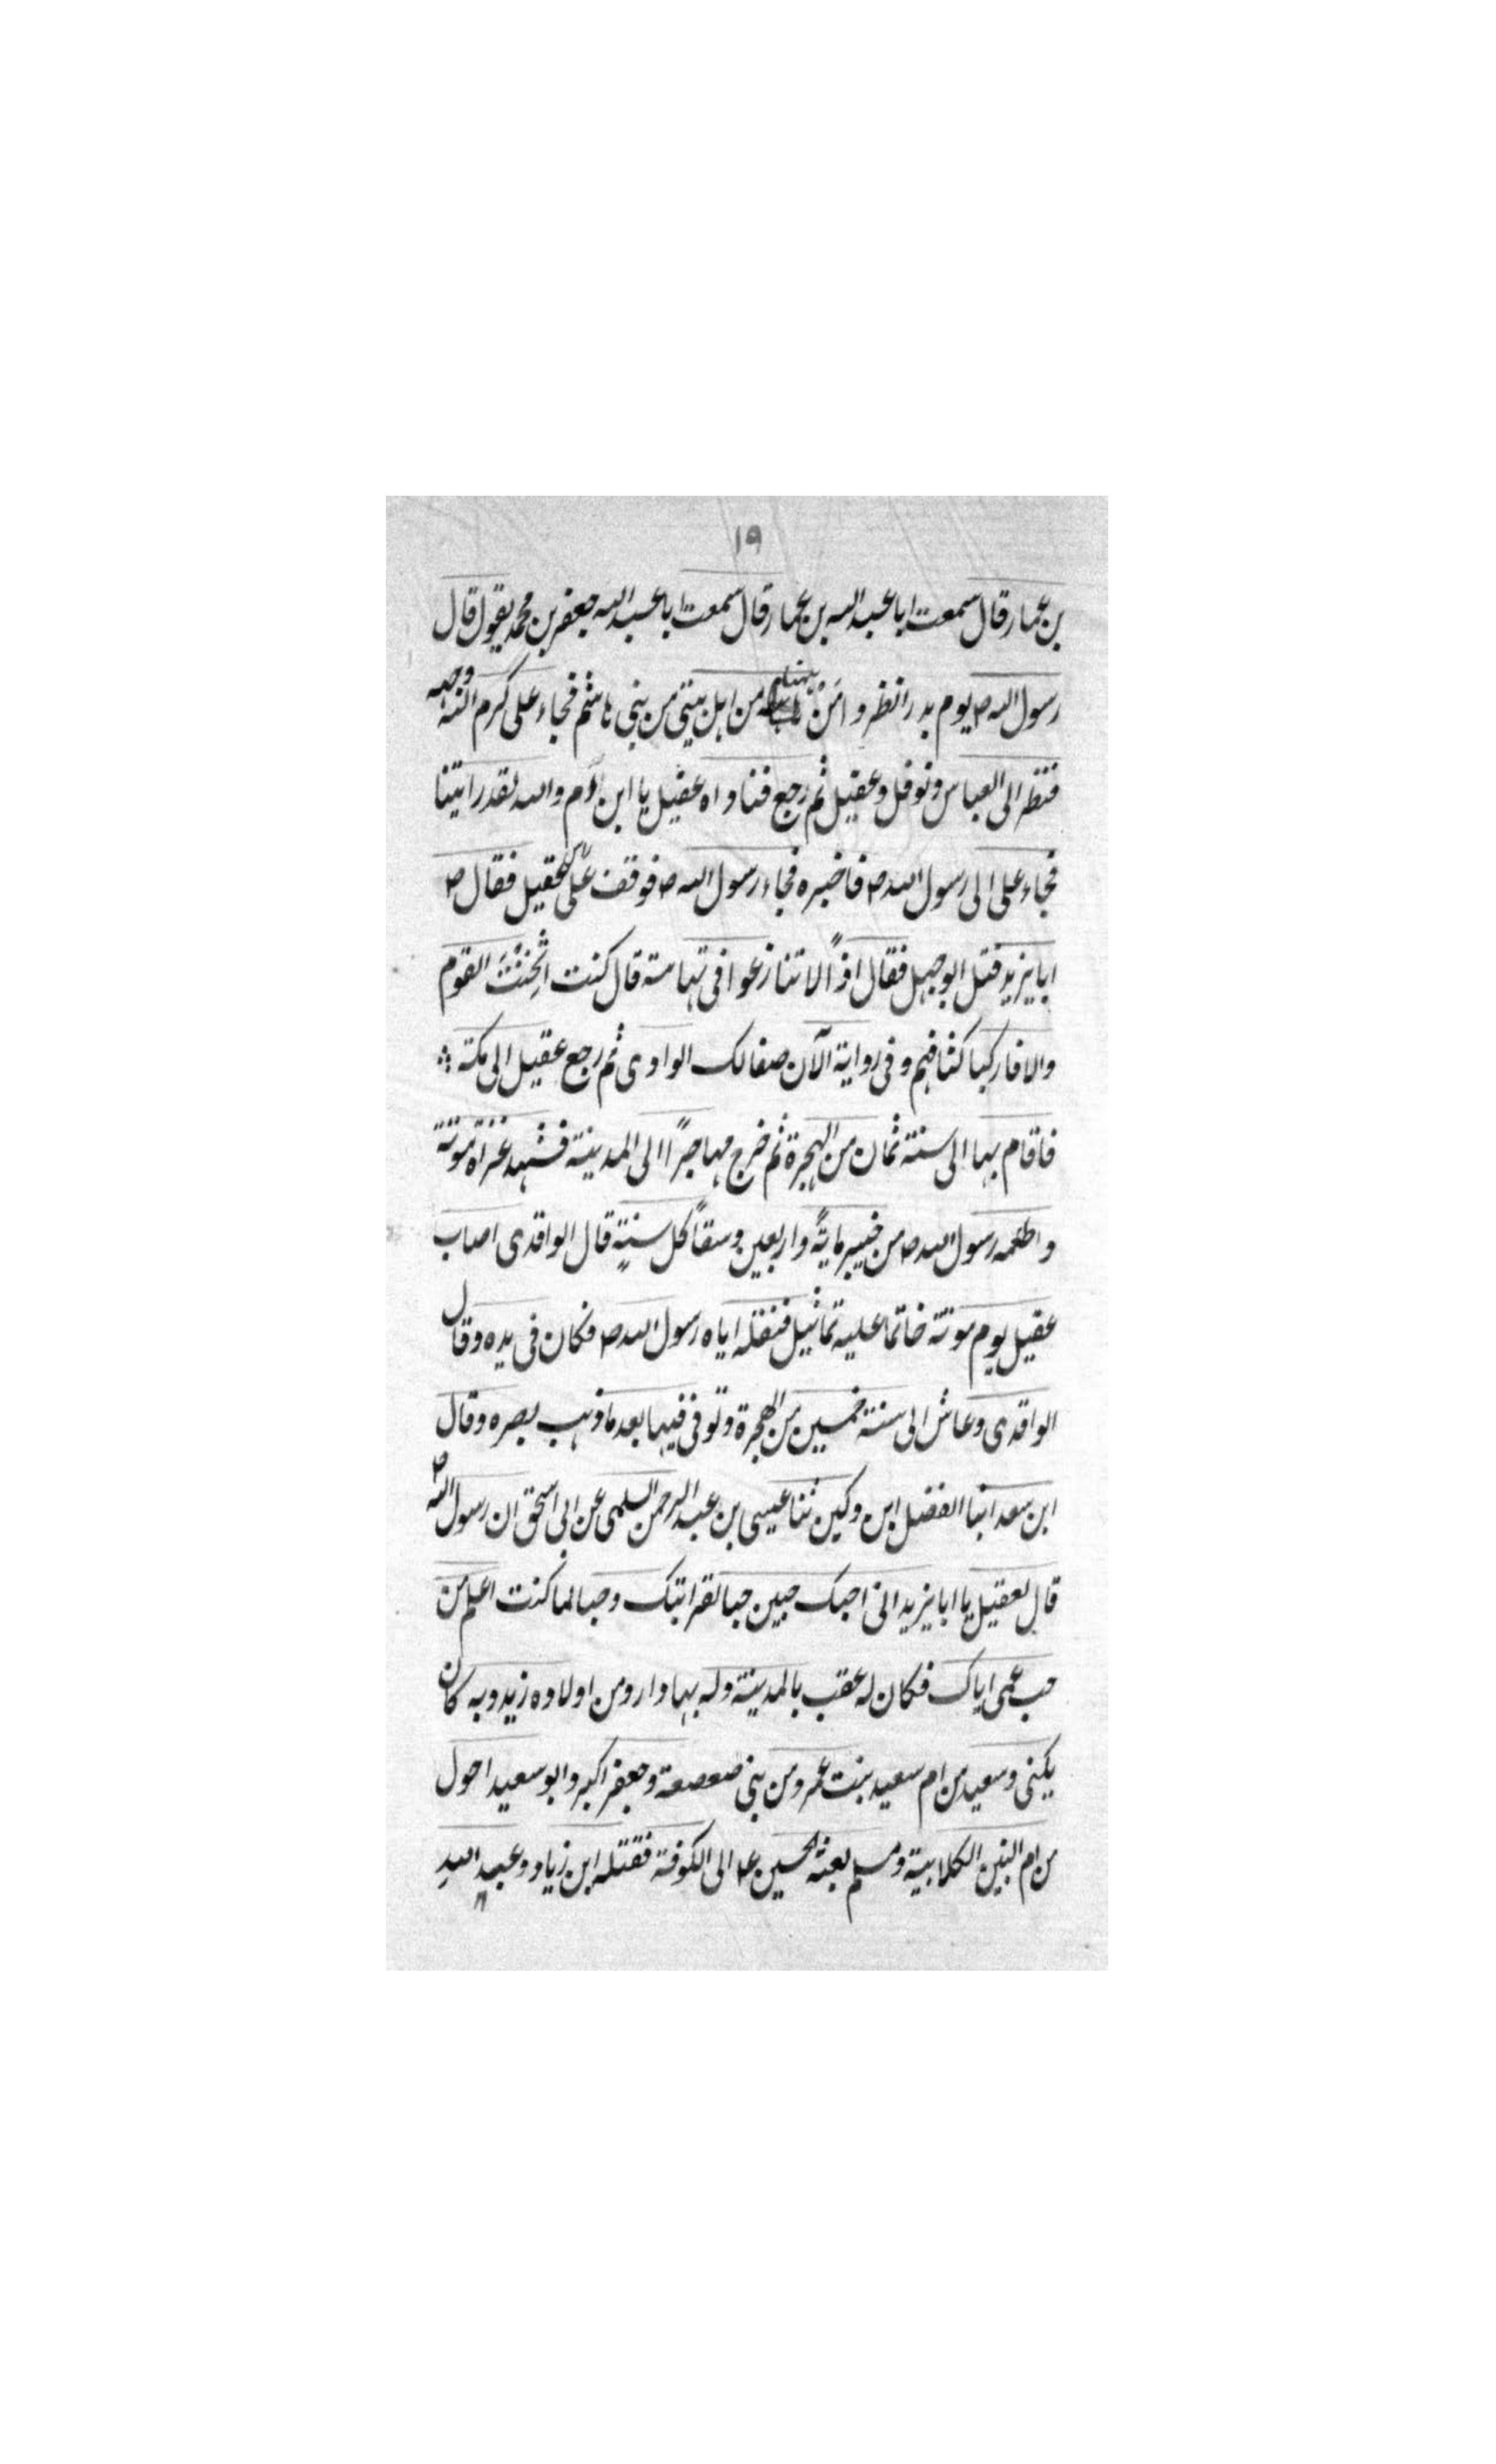 ١٩
بن عمار قال سمعت ابا عبد الله بن عمار قال سمعت ابا عبد الله جعفر بن محمد يقول قال
رسول الله ص يوم بدر انظروا مَنْ ههنا من اهل بيتي من بني هاشم فجاء على كرم الله وجهه
فنظر الى العباس ونوفل وعقيل ثم رجع فناداه عقيل يا ابن اُم والله لقد رايتنا
فجاء على الى رسول الله ص فاخبره فجاء رسول الله ص فوقف على راس عقيل فقال ص
ابا يزيد قتل ابو جهل فقال اذًا لا تنازعوا فى تهامة قال كنت اثخنْتَ القوم
والا فاركب اكتافهم وفى رواية الآن صفا لك الوادى ثم رجع عقيل الى مكة
فاقام بها الى سنة ثمان من الهجرة ثم خرج مهاجرًا الى المدينة فشهد غزاة موتة
واطعمه رسول الله ص من خيبر مايةً واربعين وسقًا كل سنةٍ قال الواقدى اصاب
عقيل يوم موتة خاتما عليه تماثيل فنفله اياه رسول الله ص فكان فى يده وقال
الواقدى وعاش الى سنة خمسين من الهجرة وتوفى فيها بعد ما ذهب بصره وقال
ابن سعد انبا الفضل ابن دكين ثنا عيسى بن عبد الرحمن السلمى عن ابى اسحق ان رسول الله ص
قال لعقيل يا ابا يزيد انى احبك حبين حبا لقرابتك وحبا لما كنت اعلم من
حب عمى اياك فكان له عقب بالمدينة وله بها دار ومن اولاده زيد وبه كان
يكنى وسعيد من ام سعيد بنت عمرو من بنى صعصعة وجعفر اكبر وابو سعيد احول
من ام البنين الكلابية ومسلم بعثه الحسين ع الى الكوفة فقتله ابن زياد وعبيد الله